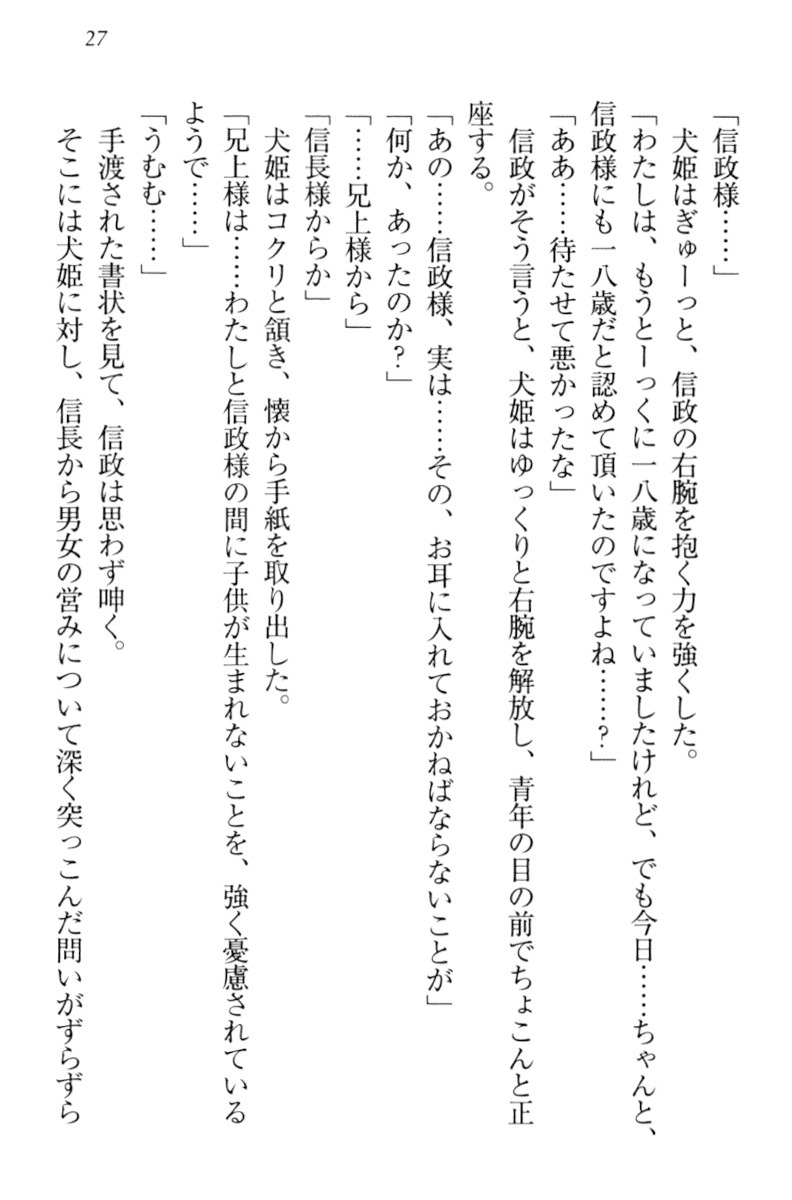 27
「信政様……」
犬姫はぎゅーっと、信政の右腕を抱く力を強くした。
「わたしは、もうとーっくに一八歳になっていましたけれど、でも今日……ちゃんと、
信政様にも一八歳だと認めて頂いたのですよね……？」
「ああ……待たせて悪かったな」
信政がそう言うと、犬姫はゆっくりと右腕を解放し、青年の目の前でちょこんと正
座する。
「あの……信政様、実は……その、お耳に入れておかねばならないことが」
「何か、あったのか？」
「……兄上様から」
「信長様からか」
犬姫はコクリと頷き、懐から手紙を取り出した。
「兄上様は……わたしと信政様の間に子供が生まれないことを、強く憂慮されている
ようで……」
「うむむ……」
手渡された書状を見て、信政は思わず呻く。
そこには犬姫に対し、信長から男女の営みについて深く突っこんだ問いがずらずら